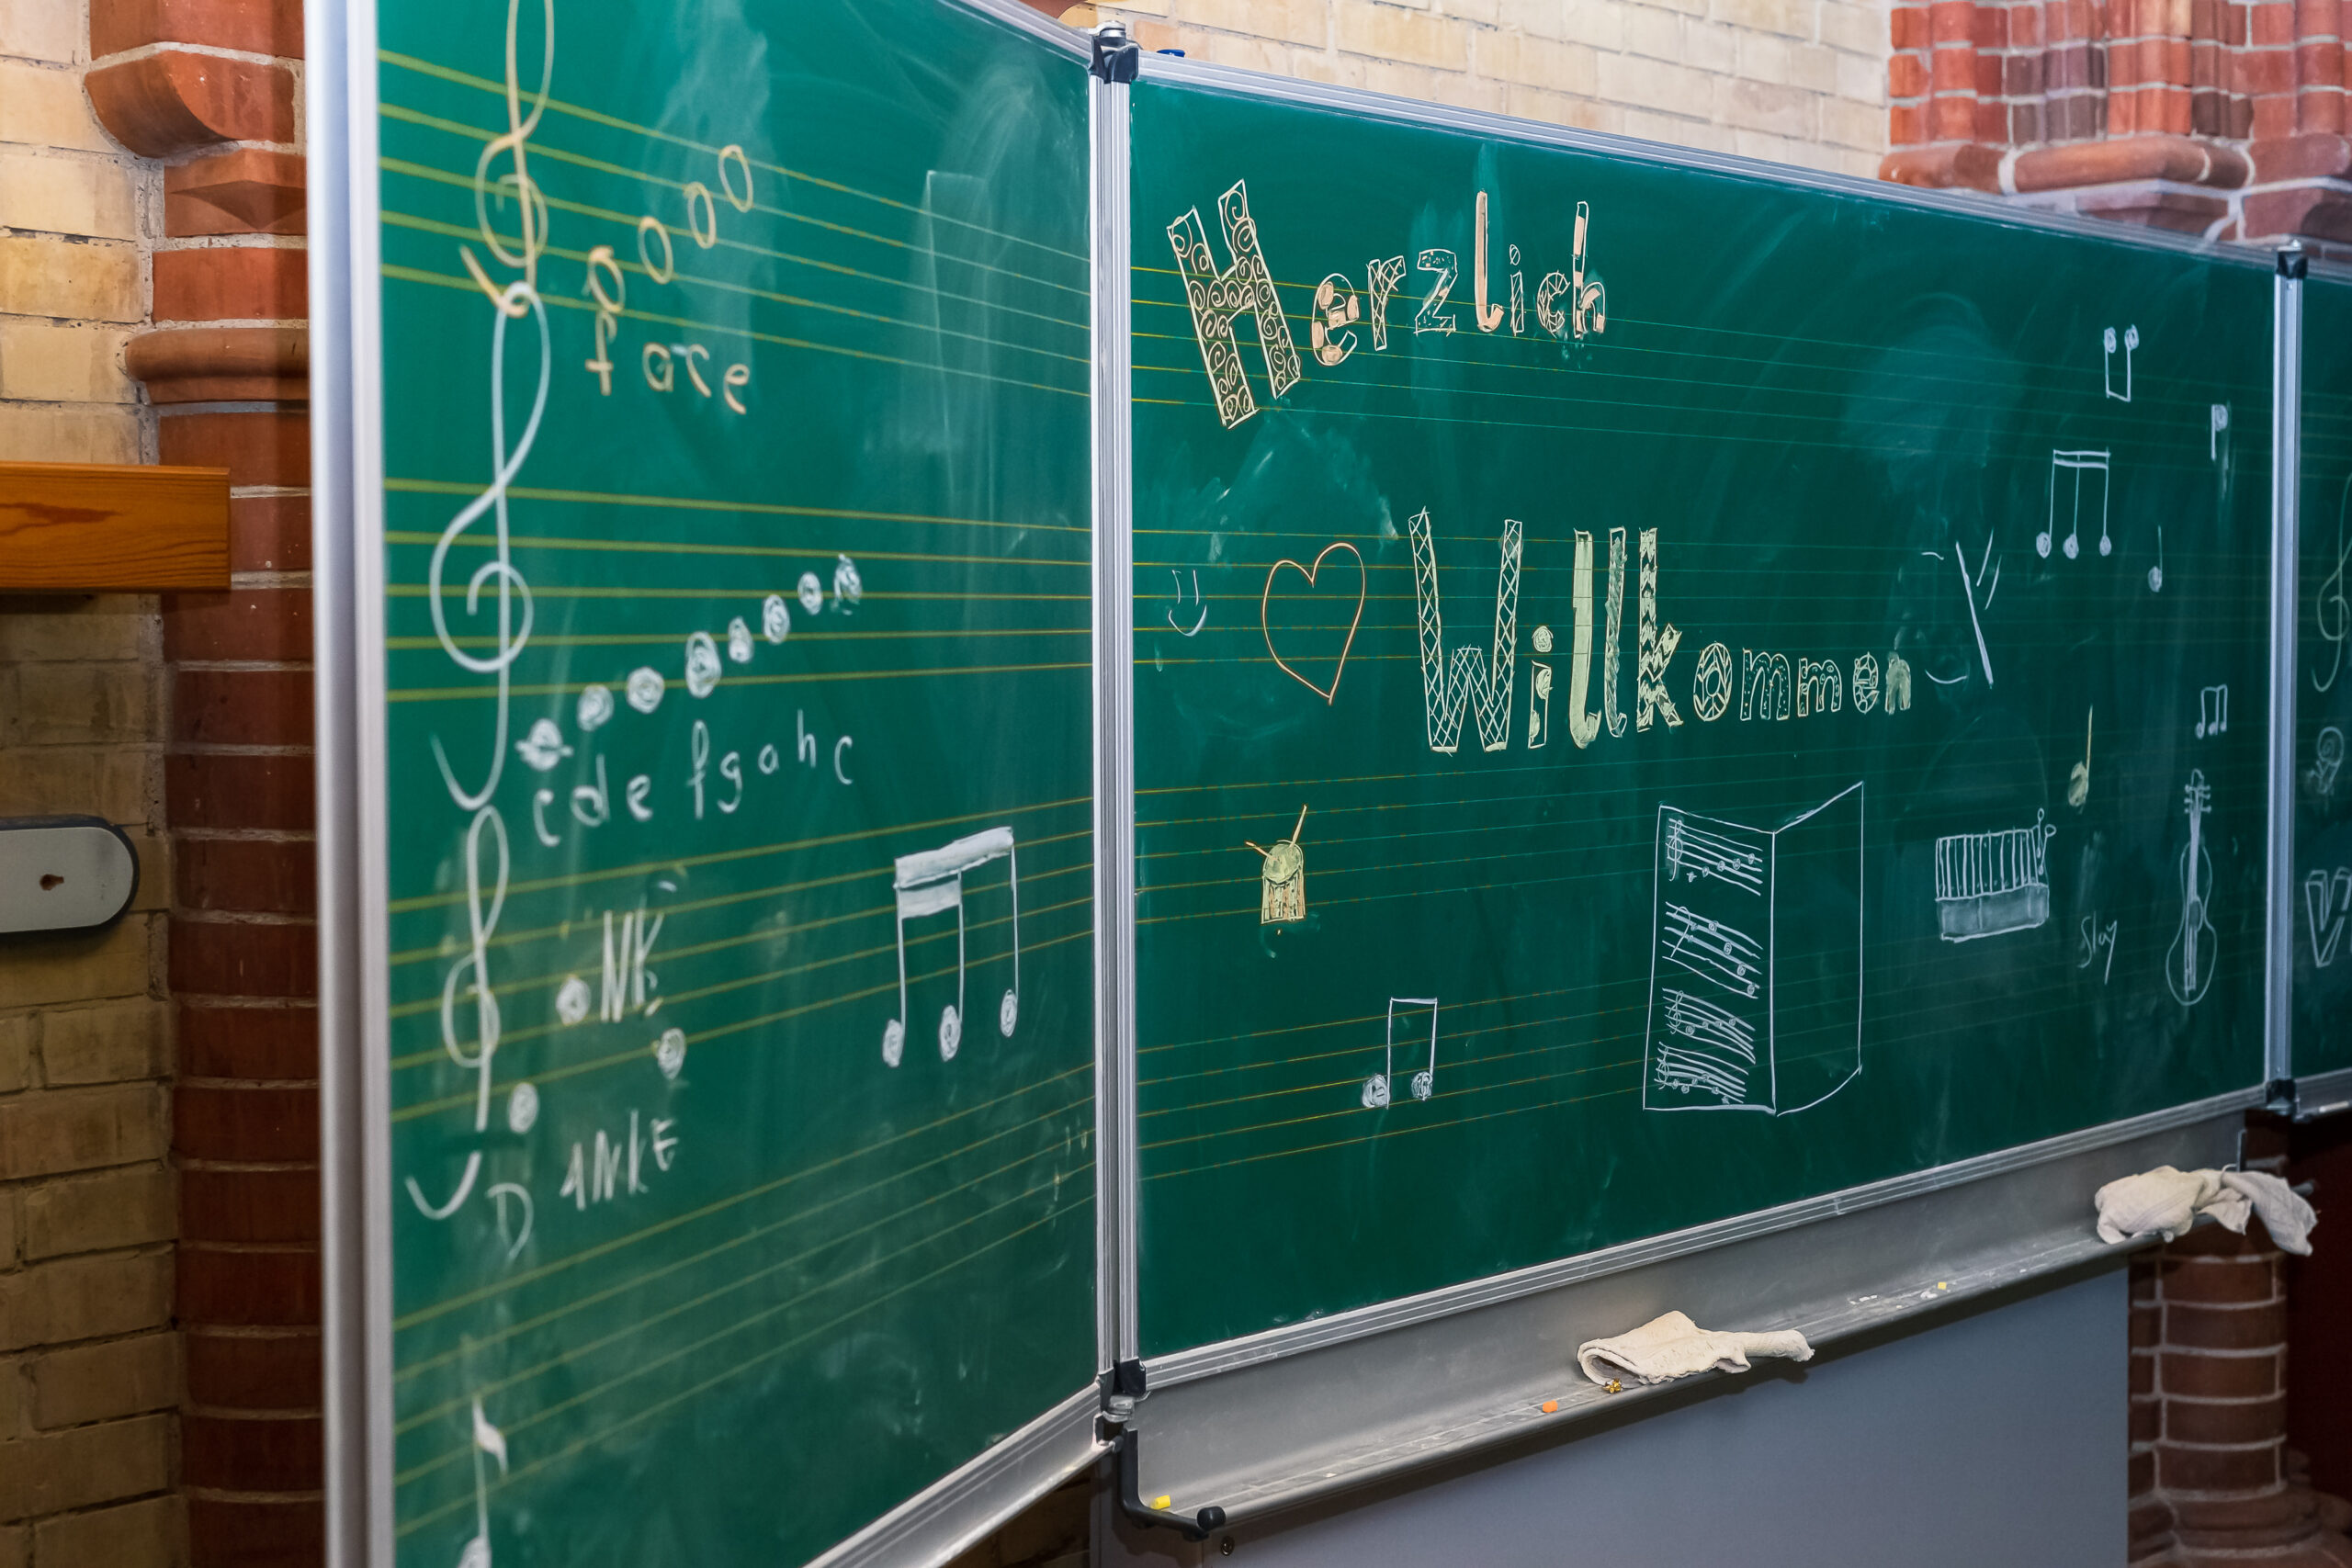 face
cdefgahc
NK
D ANKE
Herzlich
Willkommen
Slay